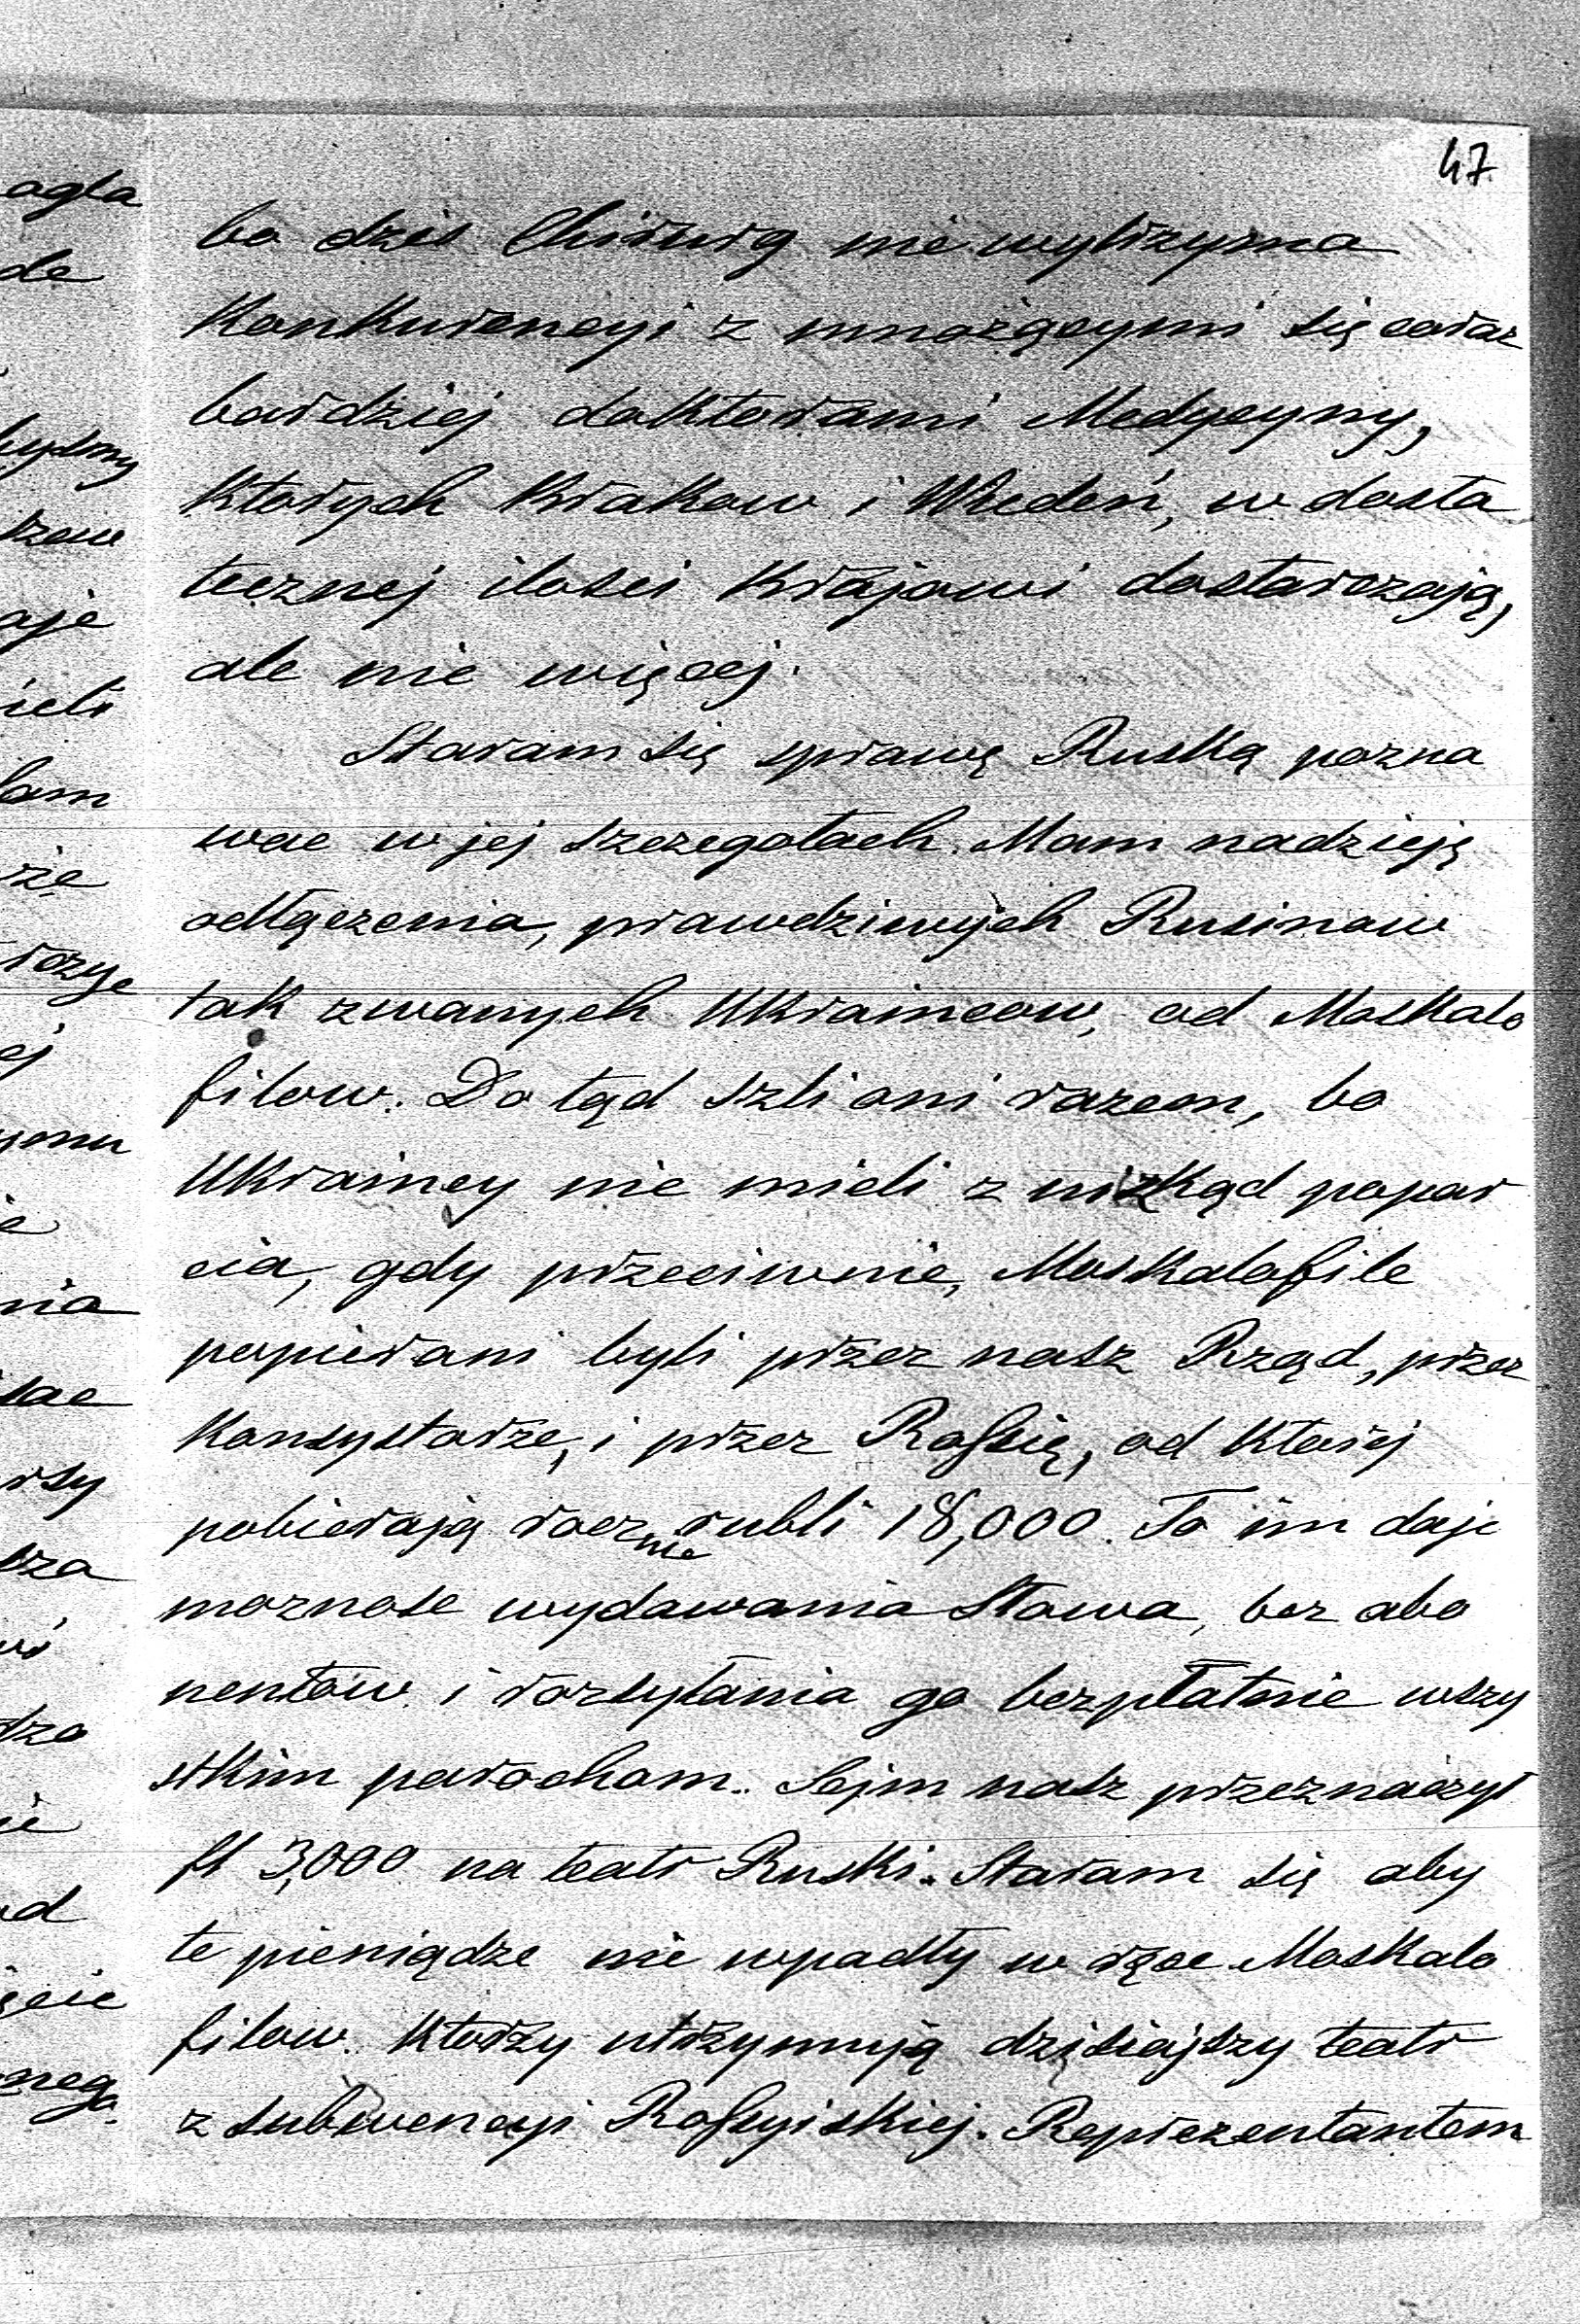 47.
bo dzis Chirurg nie wytrzyma
Konkurencyi z mnożącymi się coraz
bardziej doktorami Medycyny,
Ktorych Krakow i Wiedeń, w dosta
tecznej ilosci Krajowi dostarczają,
ale nie więcej.
Staram się sprawę Ruską pozna
wac w jej szczegołach. Mam nadzieję
odłączenia, prawdziwych Rusinow
tak zwanych Ukraincow, od Moskalo
filow. Do tąd szli oni razem, bo
Ukraincy nie mieli z nizkąd popar
cia, gdy przeciwnie, Moskalofile
popierani byli przez nasz Rząd, przez
Konsystorze, i przez Rossię, od Ktorej
pobierają rocznie rubli 18,000. To im daje
moznosc wydawania Słowa, bez abo
nentów i rozsyłania go bezpłatnie wszy
stkim parochom. Sejm nasz przeznaczył
fl 3,000 na teatr Ruski. Staram się aby
te pieniądze nie wpadły w ręce Moskalo
filow. Ktorzy utrzymują dzisiajszy teatr
z subwencyi Rossyiskiej. Reprezentantem
agła
de
aje
ieli
że
ej
ie
nia
sza
dzo
nego.